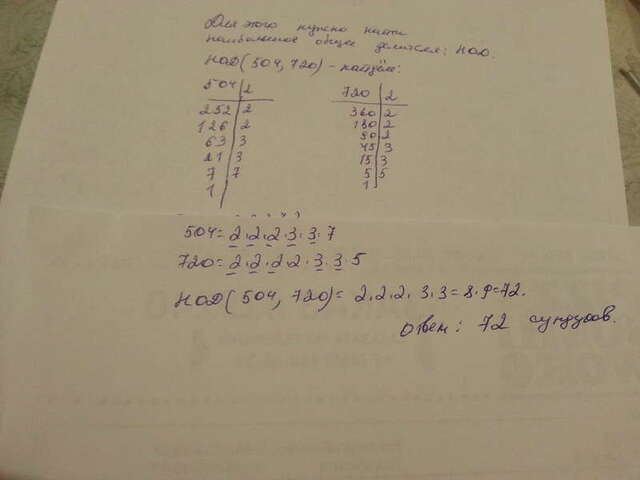 Для этого нужно найти
наибольшие общие делители: НОД.
НОД(504, 720) - найдём:
504|2
252|2
126|2
63|3
21|3
7|7
1|
720|2
360|2
180|2
90|2
45|3
15|3
5|5
1|
504=2·2·2·3·3·7
720=2·2·2·2·3·3·5
НОД(504, 720)=2·2·2·3·3=8·9=72.
Ответ: 72 сундуков.